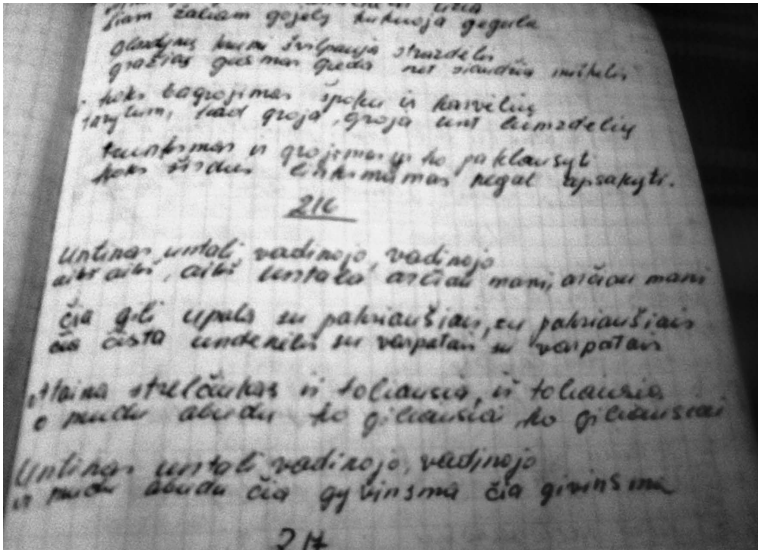 šiam žaliam gojely kukuoja gegula
gražias giesmas gieda net skamba miškelis
koks bagrojimas špoku ir karvelių
tarytum, kad groja, groja unt lumzdelių
ir grojimas yr ko paklausyti
koks širdies linksmumas negal apsakyti.
216
Untinas untali vadinojo, vadinojo
aikš aikš, aikš untala arčiau mani, arčiau mani
čia gili upala su pakriaušiais, su pakriaušiais
čia čista undenelis su varpatais su varpatais
Ataina strelčiukas iš toliausia, iš toliausia
o mudu abudu ko giliausiai, ko giliausiai
Untinas untali vadinojo, vadinojo
ir mudu abudu čia gyvinsma čia givinsma
217